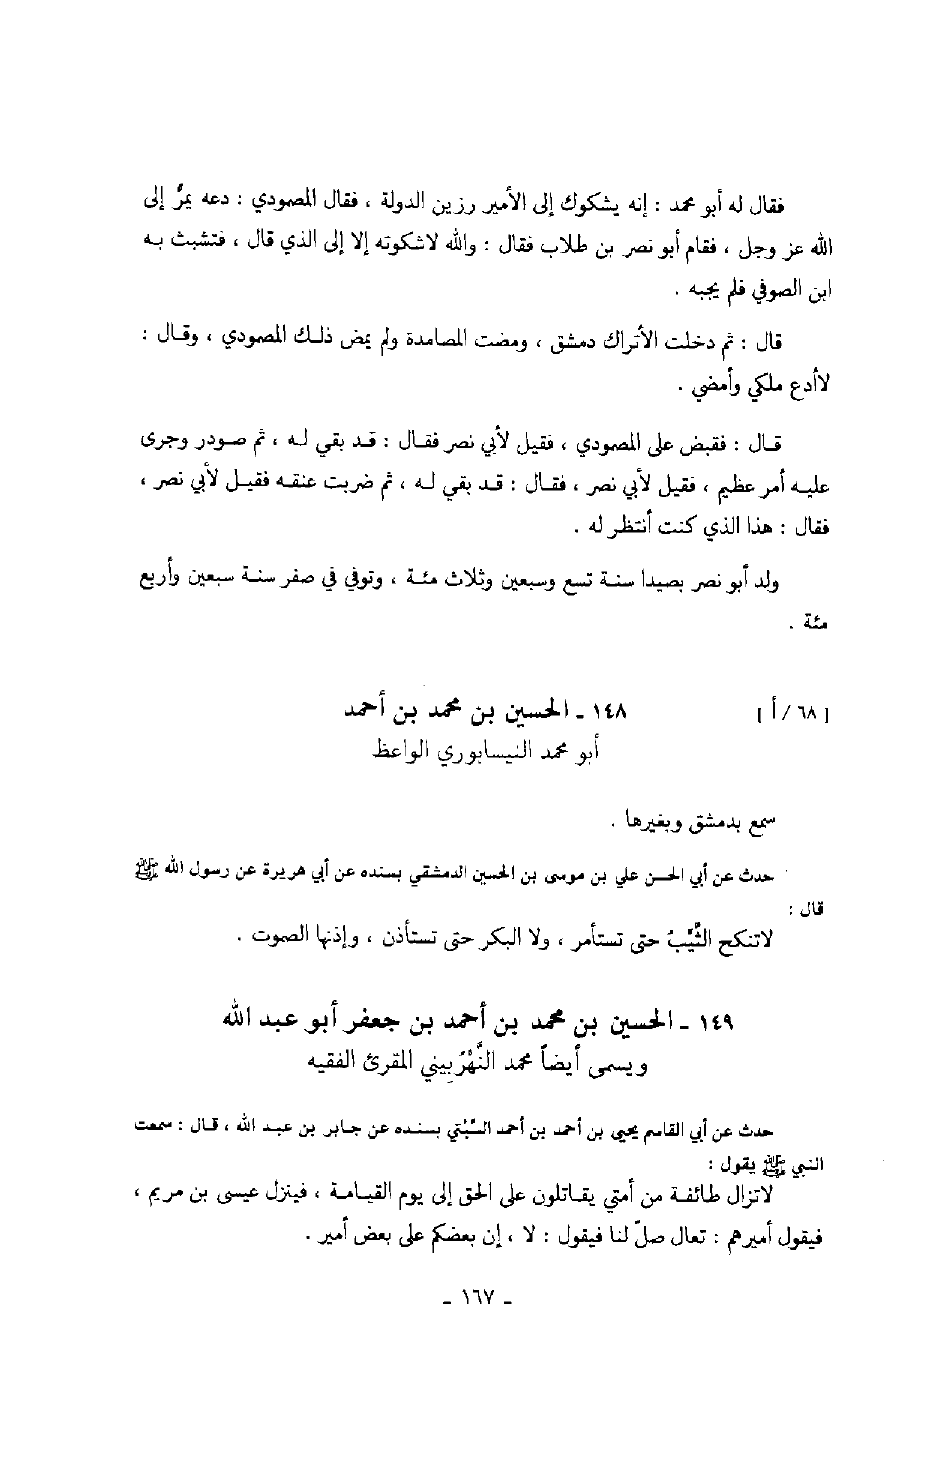 فقال له أبو محمد : إنه يشكوك إلى الأمير رزين الدولة ، فقال المصمودي : دعه يمرُّ إلى
الله عز وجل ، فقام أبو نصر بن طلاب فقال : والله لاشكوته إلا إلى الذي قال ، فتشبث به
ابن الصوفي فلم يجبه .
قال : ثم دخلت الأتراك دمشق ، ومضت المصامدة ولم يمض ذلك المصمودي ، وقال :
لاأدع ملكي وأمضي .
قال : فقبض على المصمودي ، فقيل لأبي نصر فقال : قد بقي له ، ثم صودر وجرى
عليه أمر عظيم ، فقيل لأبي نصر ، فقال : قد بقي له ، ثم ضربت عنقه فقيل لأبي نصر ،
فقال : هذا الذي كنت أنتظر له .
ولد أبو نصر بصيدا سنة تسع وسبعين وثلاث مئة ، وتوفي في صفر سنة سبعين وأربع
مئة .
[ ٦٨/أ ] ١٤٨ ـ الحسين بن محمد بن أحمد
أبو محمد النيسابوري الواعظ
سمع بدمشق وبغيرها .
حدث عن أبي الحسن علي بن موسى بن الحسين الدمشقي بسنده عن أبي هريرة عن رسول الله ﷺ
قال :
لاتنكح الثَّيِّبُ حتى تستأمر ، ولا البكر حتى تستأذن ، وإذنها الصموت .
١٤٩ ـ الحسين بن محمد بن أحمد بن جعفر أبو عبد الله
ويسمى أيضاً محمد النَّهْرُبِيني المقرئ الفقيه
حدث عن أبي القاسم يحيى بن أحمد بن أحمد السَّبْتي بسنده عن جابر بن عبد الله ، قال : سمعت
النبي ﷺ يقول :
لاتزال طائفة من أمتي يقاتلون على الحق إلى يوم القيامة ، فينزل عيسى بن مريم ،
فيقول أميرهم : تعال صلّ لنا فيقول : لا ، إن بعضكم على بعض أمير .
ـ ١٦٧ ـ